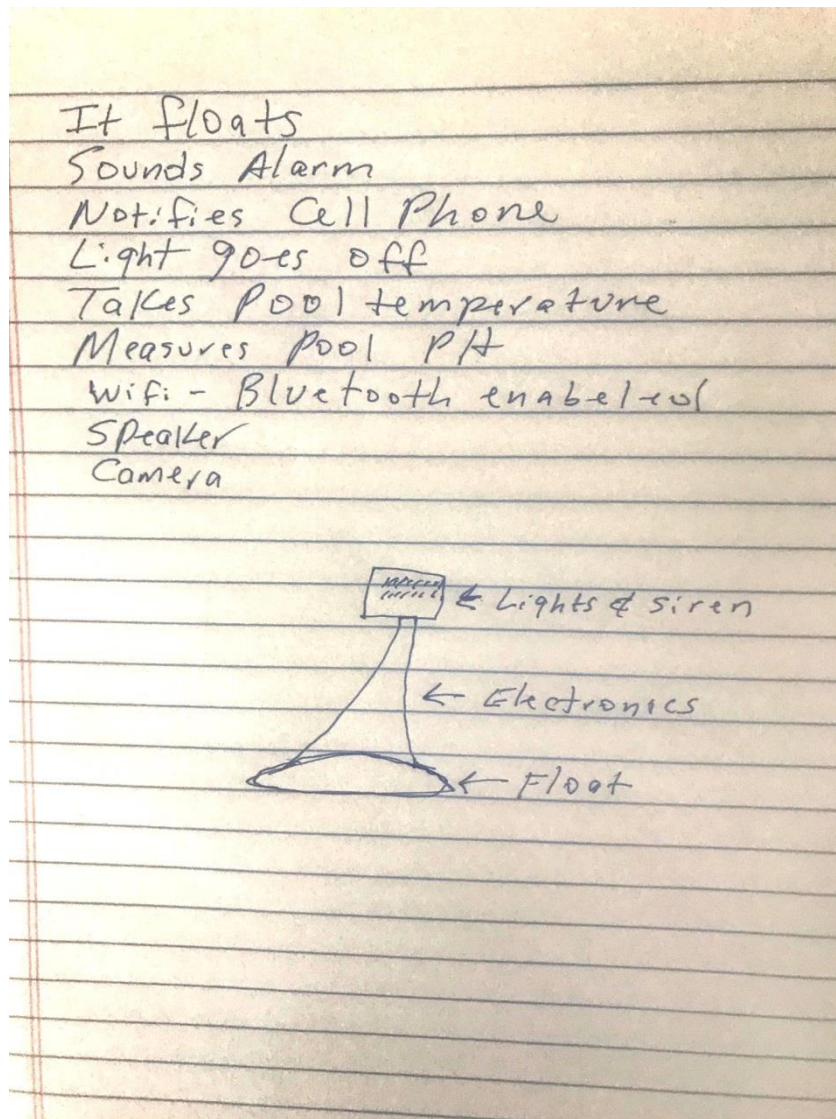 It floats
Sounds Alarm
Notifies Cell Phone
Light goes off
Takes Pool temperature
Measures Pool PH
Wifi - Bluetooth enabeled
Speaker
Camera
← Lights & Siren
← Electronics
← Float